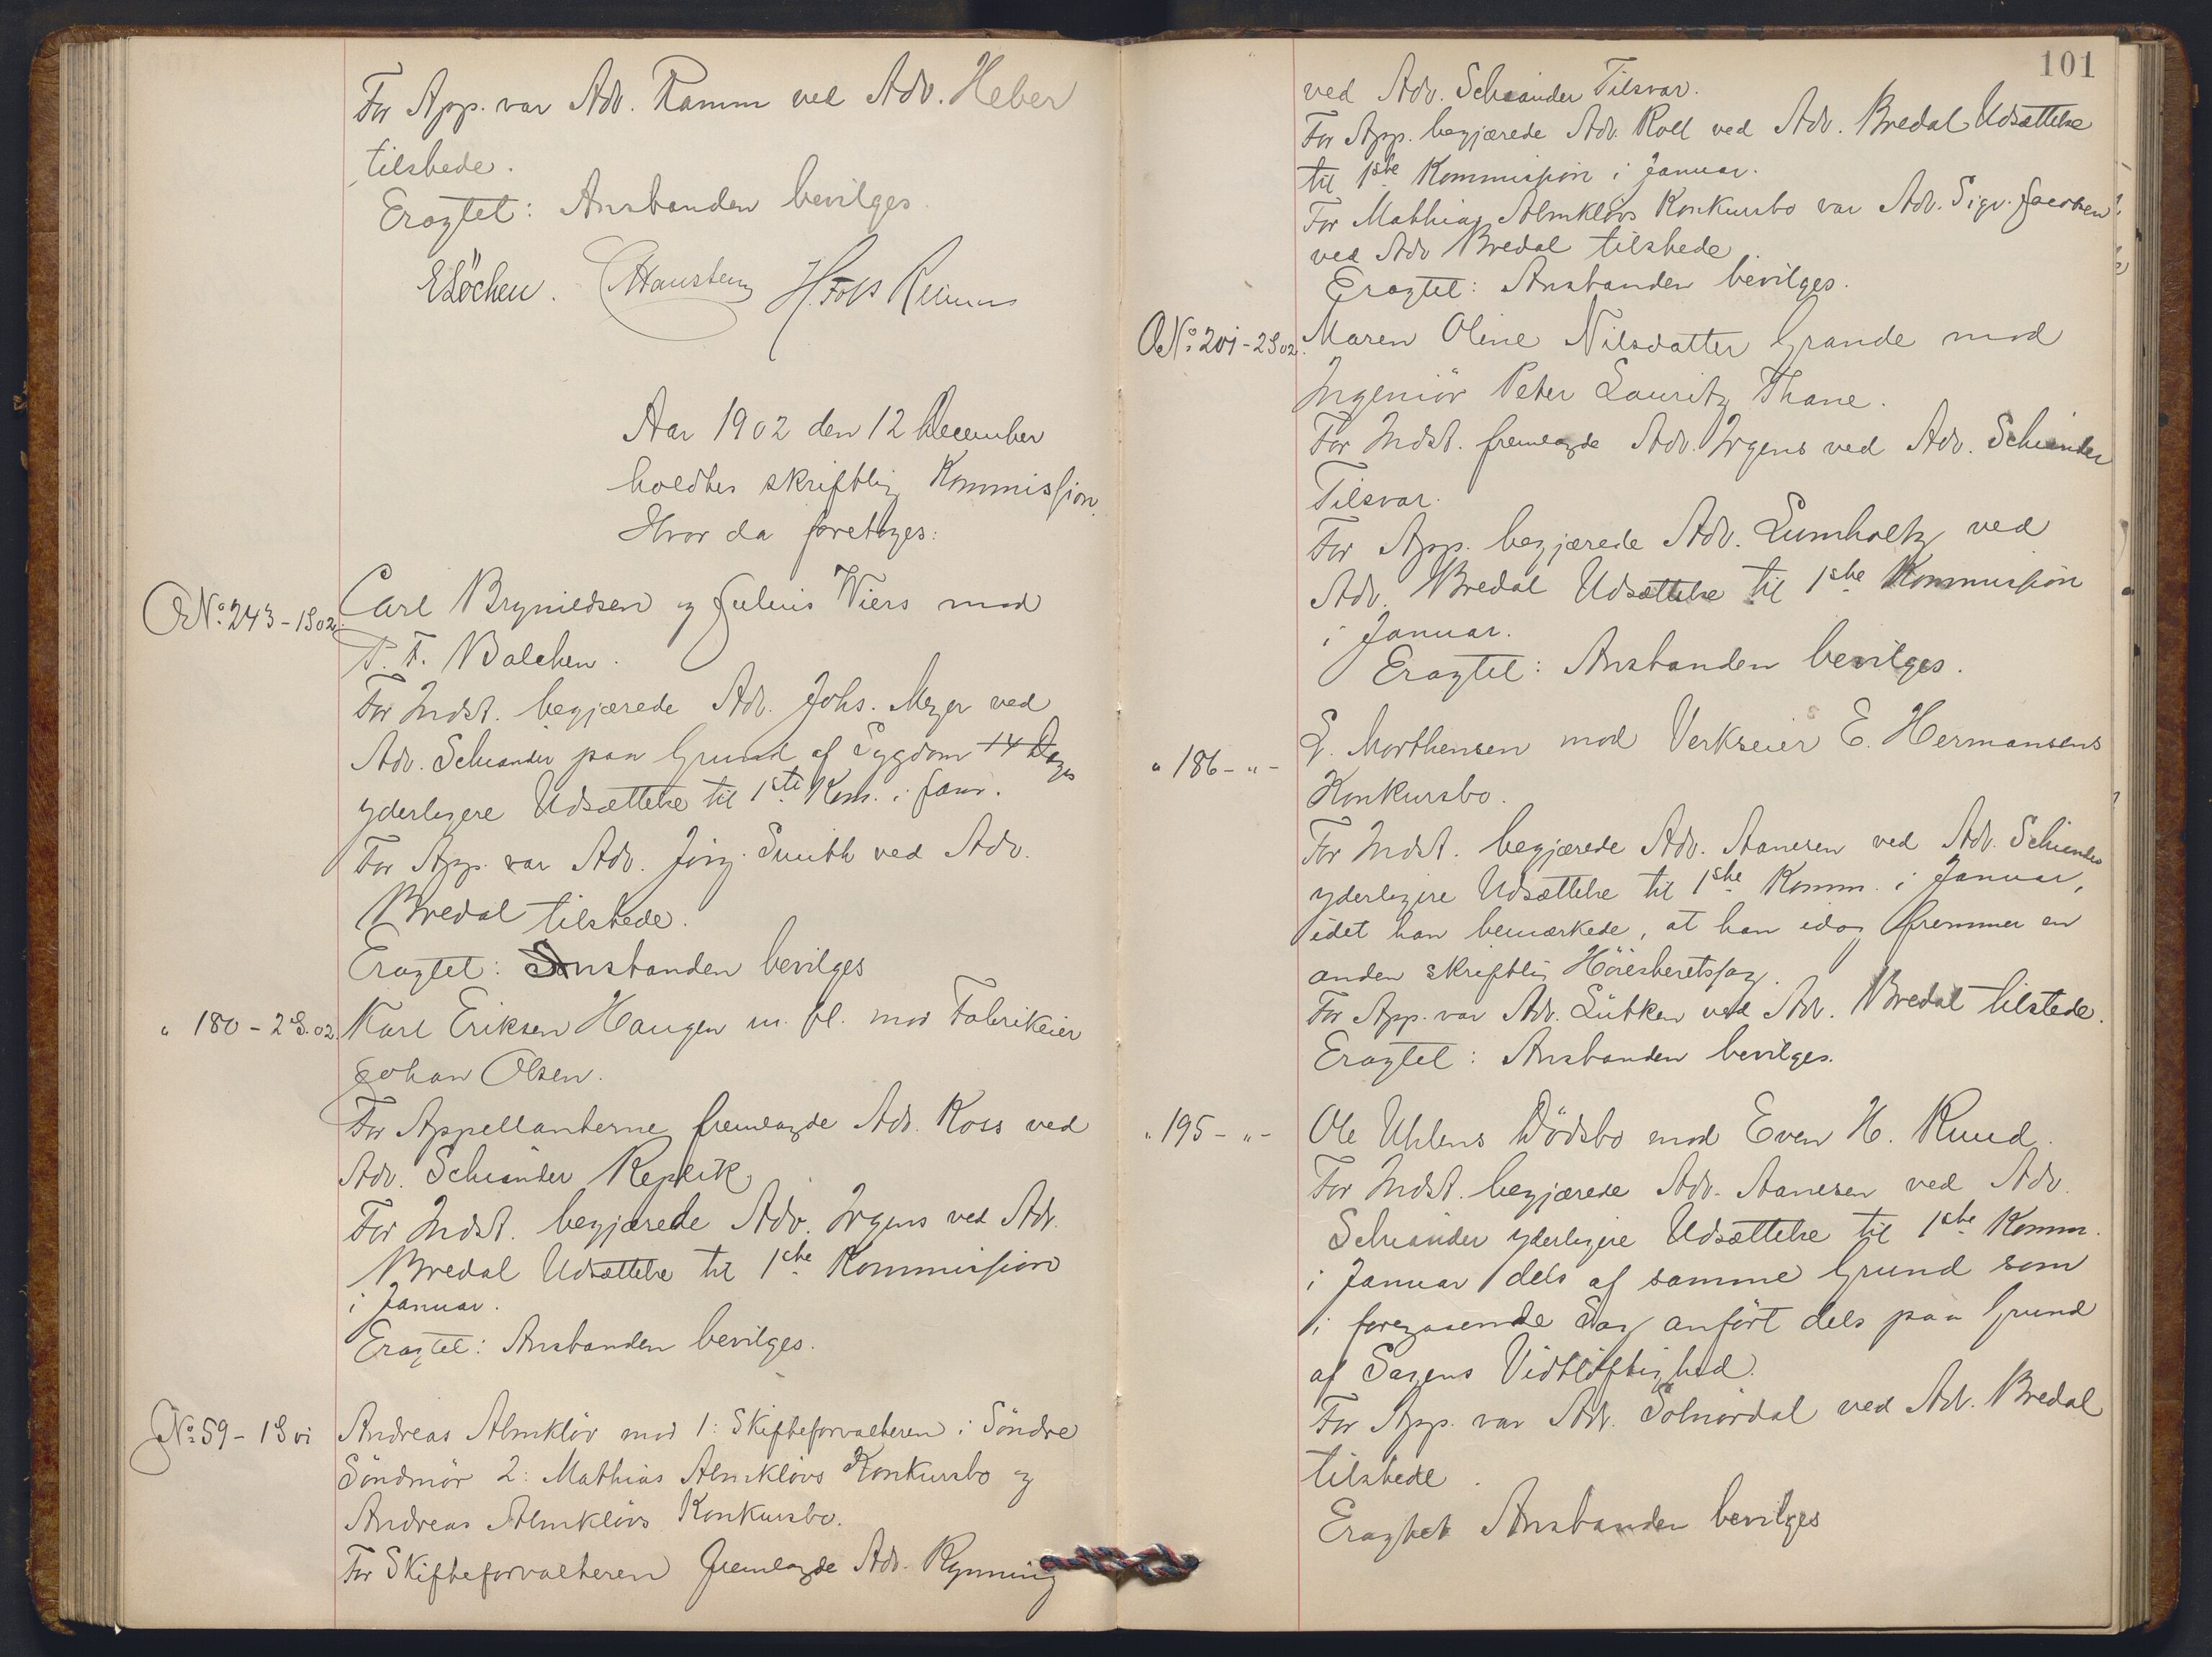 For App. var Adv. Ramm ved Adv. Heber
tilstede.
Eragtet: Anstanden bevilges.
E Löchen. C Hansteen H. Foss Reimers
Aar 1902 den 12 December
holdtes skriftlig Kommission.
Hvor da foretoges:
No. 243 - 1S 02.
Carl Brynildsen og Julius Wiers mod
P. F. Balchen.
For Indst. begjærede Adv. Johs. Meyer ved
Adv. Schiander paa Grund af Sygdom 14 Dages
yderligere Udsættelse til 1ste Kom. i Janr.
For App. var Adv. Jörg. Smith ved Adv.
Bredal tilstede.
Eragtet: Anstanden bevilges
" 180 - 2S. 02.
Karl Eriksen Haugen m. fl. mod Fabrikeier
Johan Olsen.
For Appellanterne fremlagde Adv. Koss ved
Adv. Schiander Replik
For Indst. begjærede Adv. Irgens ved Adv.
Bredal Udsættelse til 1ste Kommission
i Januar.
Eragtet: Anstanden bevilges.
No. 59 - 1S 01
Andreas Almklöv mod 1: Skifteforvalteren i Söndre
Söndmör 2: Mathias Almklövs Konkursbo og
Andreas Almklövs Konkursbo.
For Skifteforvalteren fremlagde Adv. Rynning
101
ved Adv. Schiander Tilsvar.
For App. begjærede Adv. Roll ved Adv. Bredal Udsættelse
til 1ste Kommission i Januar.
For Mathias Almklövs Konkursbo var Adv. Sigv. Jacobsen
ved Adv Bredal tilstede
Eragtet: Anstanden bevilges.
No. 201 - 2S 02.
Maren Oline Nilsdatter Grande mod
Ingeniör Peter Lauritz Thane.
For Indst. fremlagde Adv. Irgens ved Adv. Schiander
Tilsvar.
For App. begjærede Adv. Lumholtz ved
Adv. Bredal Udsættelse til 1ste Kommission
i Januar.
Eragtet: Anstanden bevilges.
" 186 - " -
L. Morthensen mod Verkseier E. Hermansens
Konkursbo.
For Indst. begjærede Adv. Aanesen ved Adv. Schiander
yderligere Udsættelse til 1ste Komm. i Januar,
idet han bemærkede, at han idag fremmer en
anden skriftlig Höiesteretssag.
For App. var Adv. Lütken ved Adv. Bredal tilstede.
Eragtet: Anstanden bevilges.
" 195 - " -
Ole Uhlens Dödsbo mod Even H. Ruud.
For Indst. begjærede Adv. Aanesen ved Adv.
Schiander yderligere Udsættelse til 1ste Komm.
i Januar dels af samme Grund som
i foregaaende Sag anfört dels paa Grund
af Sagens Vidtlöftighed.
For App. var Adv. Solnördal ved Adv. Bredal
tilstede.
Eragtet Anstanden bevilges